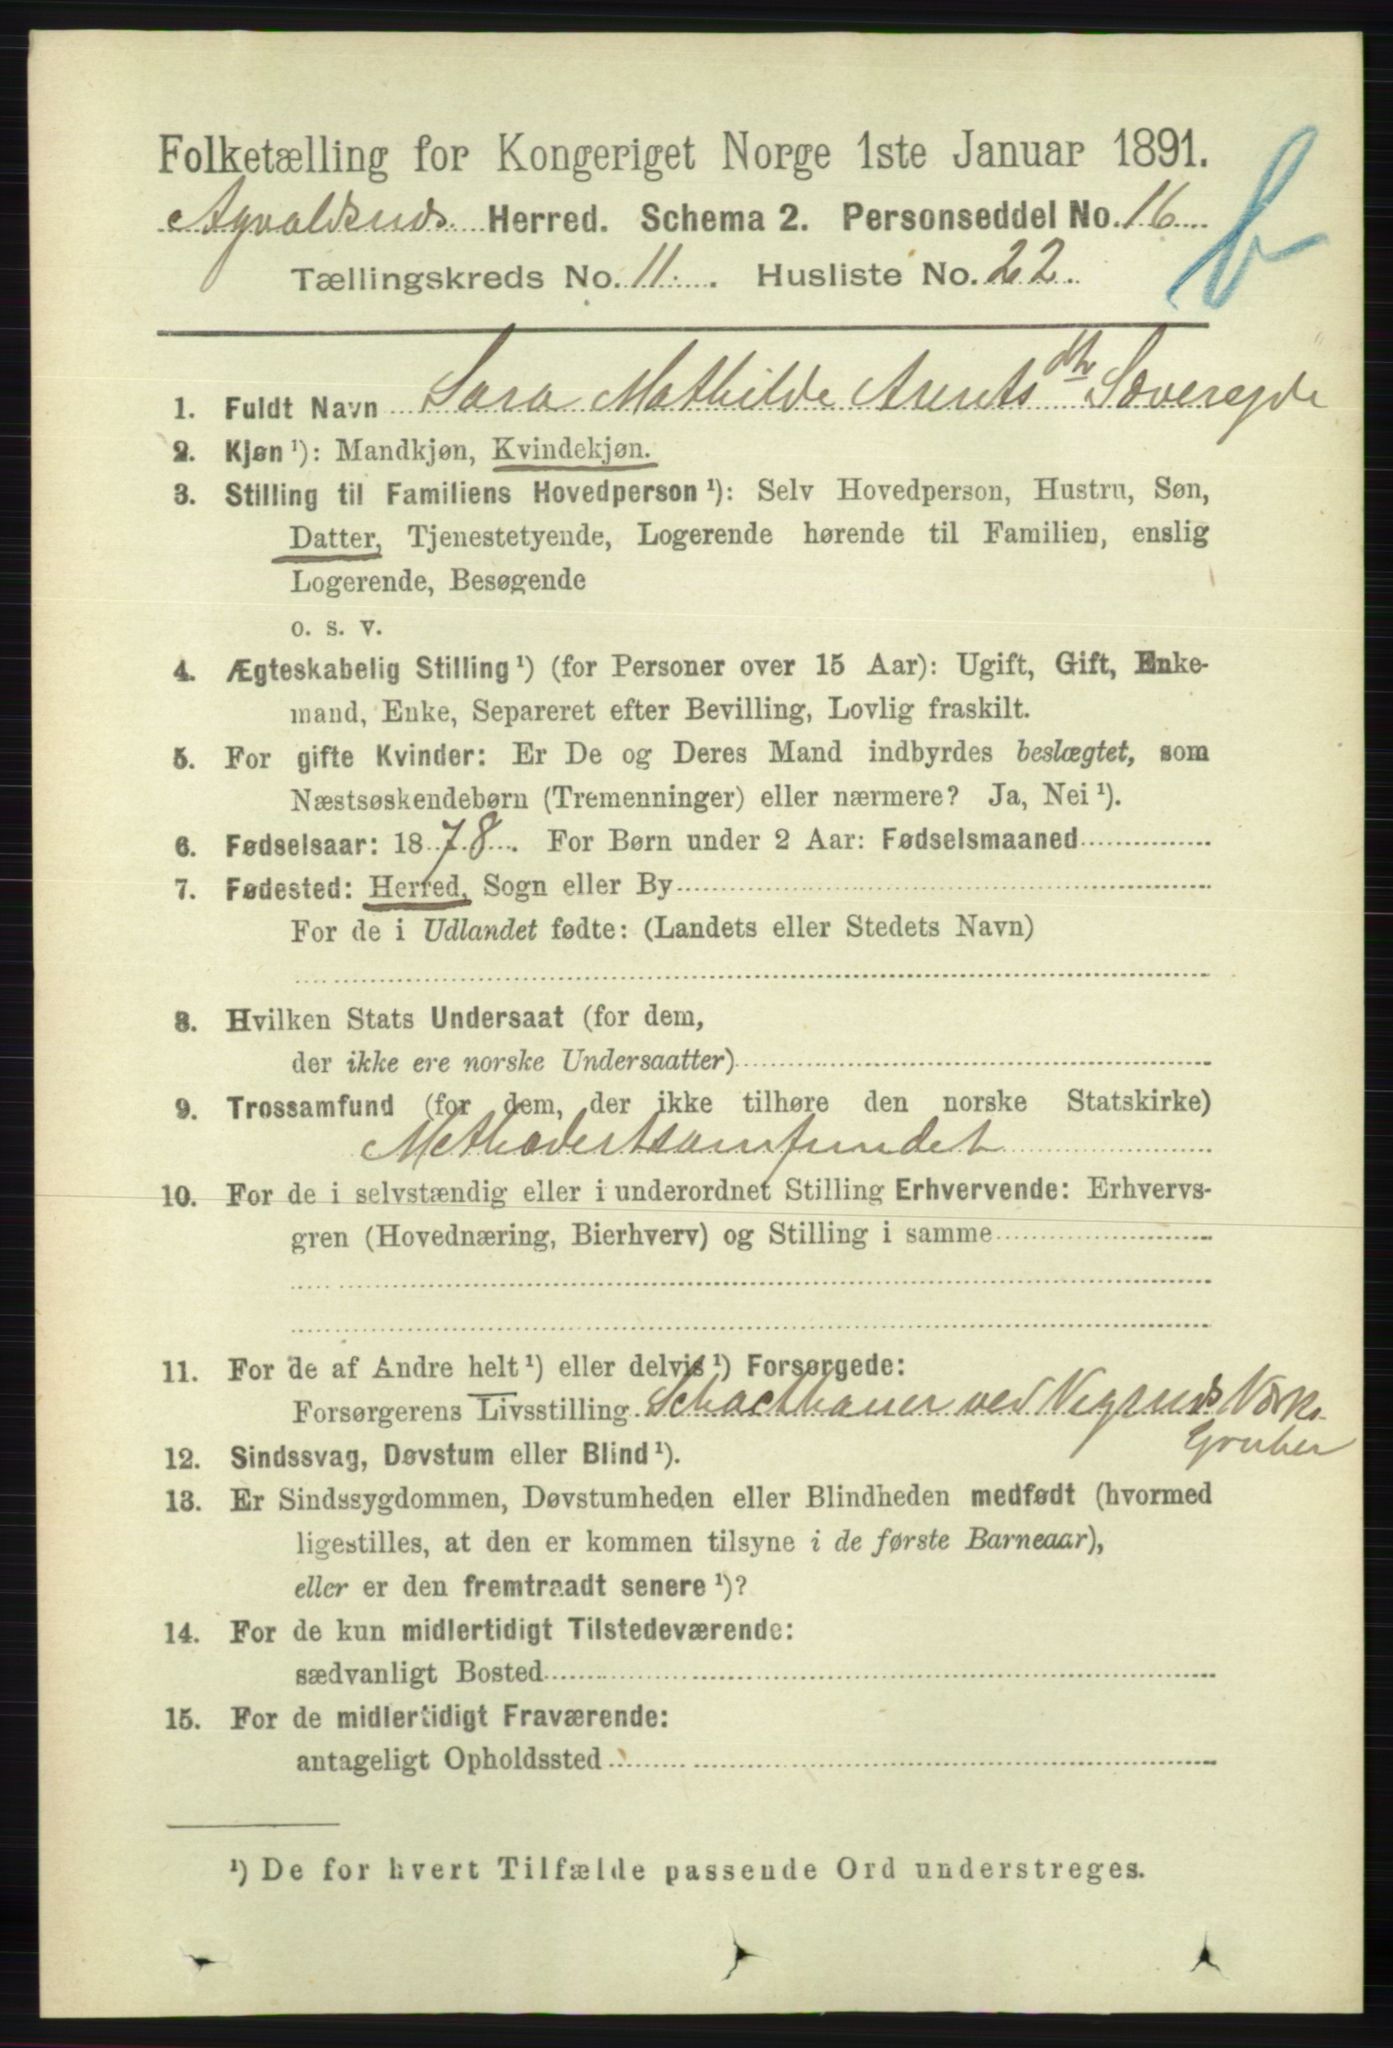 Folketælling for Kongeriget Norge 1ste Januar 1891.
Agvaldsnds Herred. Schema 2. Personseddel No. 16
Tællingskreds No. 11. Husliste No. 22.
1. Fuldt Navn Sara Mathilde Arents dtr
2. Kjøn ¹): Mandkjøn, Kvindekjøn.
3. Stilling til Familiens Hovedperson ¹): Selv Hovedperson, Hustru, Søn,
Datter, Tjenestetyende, Logerende hørende til Familien, enslig
Logerende, Besøgende
o. s. v.
4. Ægteskabelig Stilling ¹) (for Personer over 15 Aar): Ugift, Gift, Enke-
mand, Enke, Separeret efter Bevilling, Lovlig fraskilt.
5. For gifte Kvinder: Er De og Deres Mand indbyrdes beslægtet, som
Næstsøskendebørn (Tremenninger) eller nærmere? Ja, Nei ¹).
6. Fødselsaar: 1878. For Børn under 2 Aar: Fødselsmaaned
7. Fødested: Herred, Sogn eller By
For de i Udlandet fødte: (Landets eller Stedets Navn)
8. Hvilken Stats Undersaat (for dem,
der ikke ere norske Undersaatter)
9. Trossamfund (for dem, der ikke tilhøre den norske Statskirke)
Methodertsamfundet
10. For de i selvstændig eller i underordnet Stilling Erhvervende: Erhvervs-
gren (Hovednæring, Bierhverv) og Stilling i samme
11. For de af Andre helt ¹) eller delvis ¹) Forsørgede:
Forsørgerens Livsstilling Schacthauer ved Vigsnds Værks
Gruber
12. Sindssvag, Døvstum eller Blind ¹).
13. Er Sindssygdommen, Døvstumheden eller Blindheden medfødt (hvormed
ligestilles, at den er kommen tilsyne i de første Barneaar),
eller er den fremtraadt senere ¹)?
14. For de kun midlertidigt Tilstedeværende:
sædvanligt Bosted
15. For de midlertidigt Fraværende:
antageligt Opholdssted
¹) De for hvert Tilfælde passende Ord understreges.